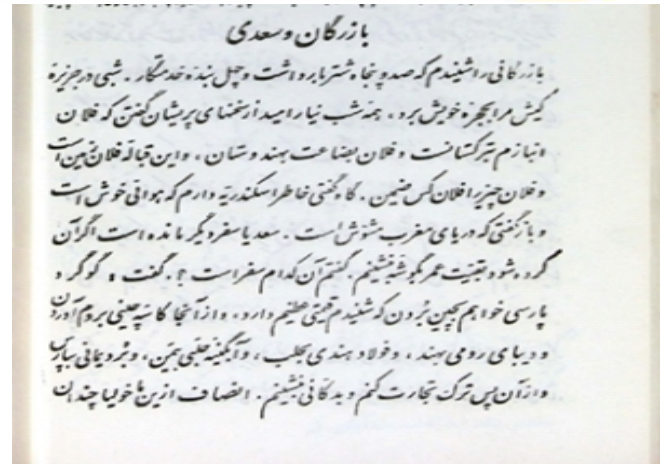 بازرگان و سعدی
بازرگانی را شنیدم که صد و پنجاه شتر بار داشت و چهل بنده خدمتکار . شبی در جزیره
کیش مرا بحجره خویش برد ، همه شب نیارامید از سخنهای پریشان گفتن که فلان
انبازم بترکستانست و فلان بضاعت بهندوستان ، و این قباله فلان زمین است
و فلان چیز را فلان کس ضمین . گاه گفتی خاطر اسکندریه دارم که هوائی خوش است
و باز گفتی که دریای مغرب مشوش است . سعدیا سفر دیگر مانده است اگر آن
کرده شود بقیت عمر بگوشه بنشینم . گفتم آن کدام سفر است ؟ . گفت ، گوگرد
پارسی خواهم بچین بردن که شنیدم قیمتی عظیم دارد ، و از آنجا کاسه چینی بروم آوردن
و دیبای رومی بهند ، و فولاد هندی بحلب ، و آبگینه حلبی بیمن ، و برد یمانی بپارس
و از آن پس ترک تجارت کنم و بدکانی بنشینم . انصاف ازین ماخولیا چندان